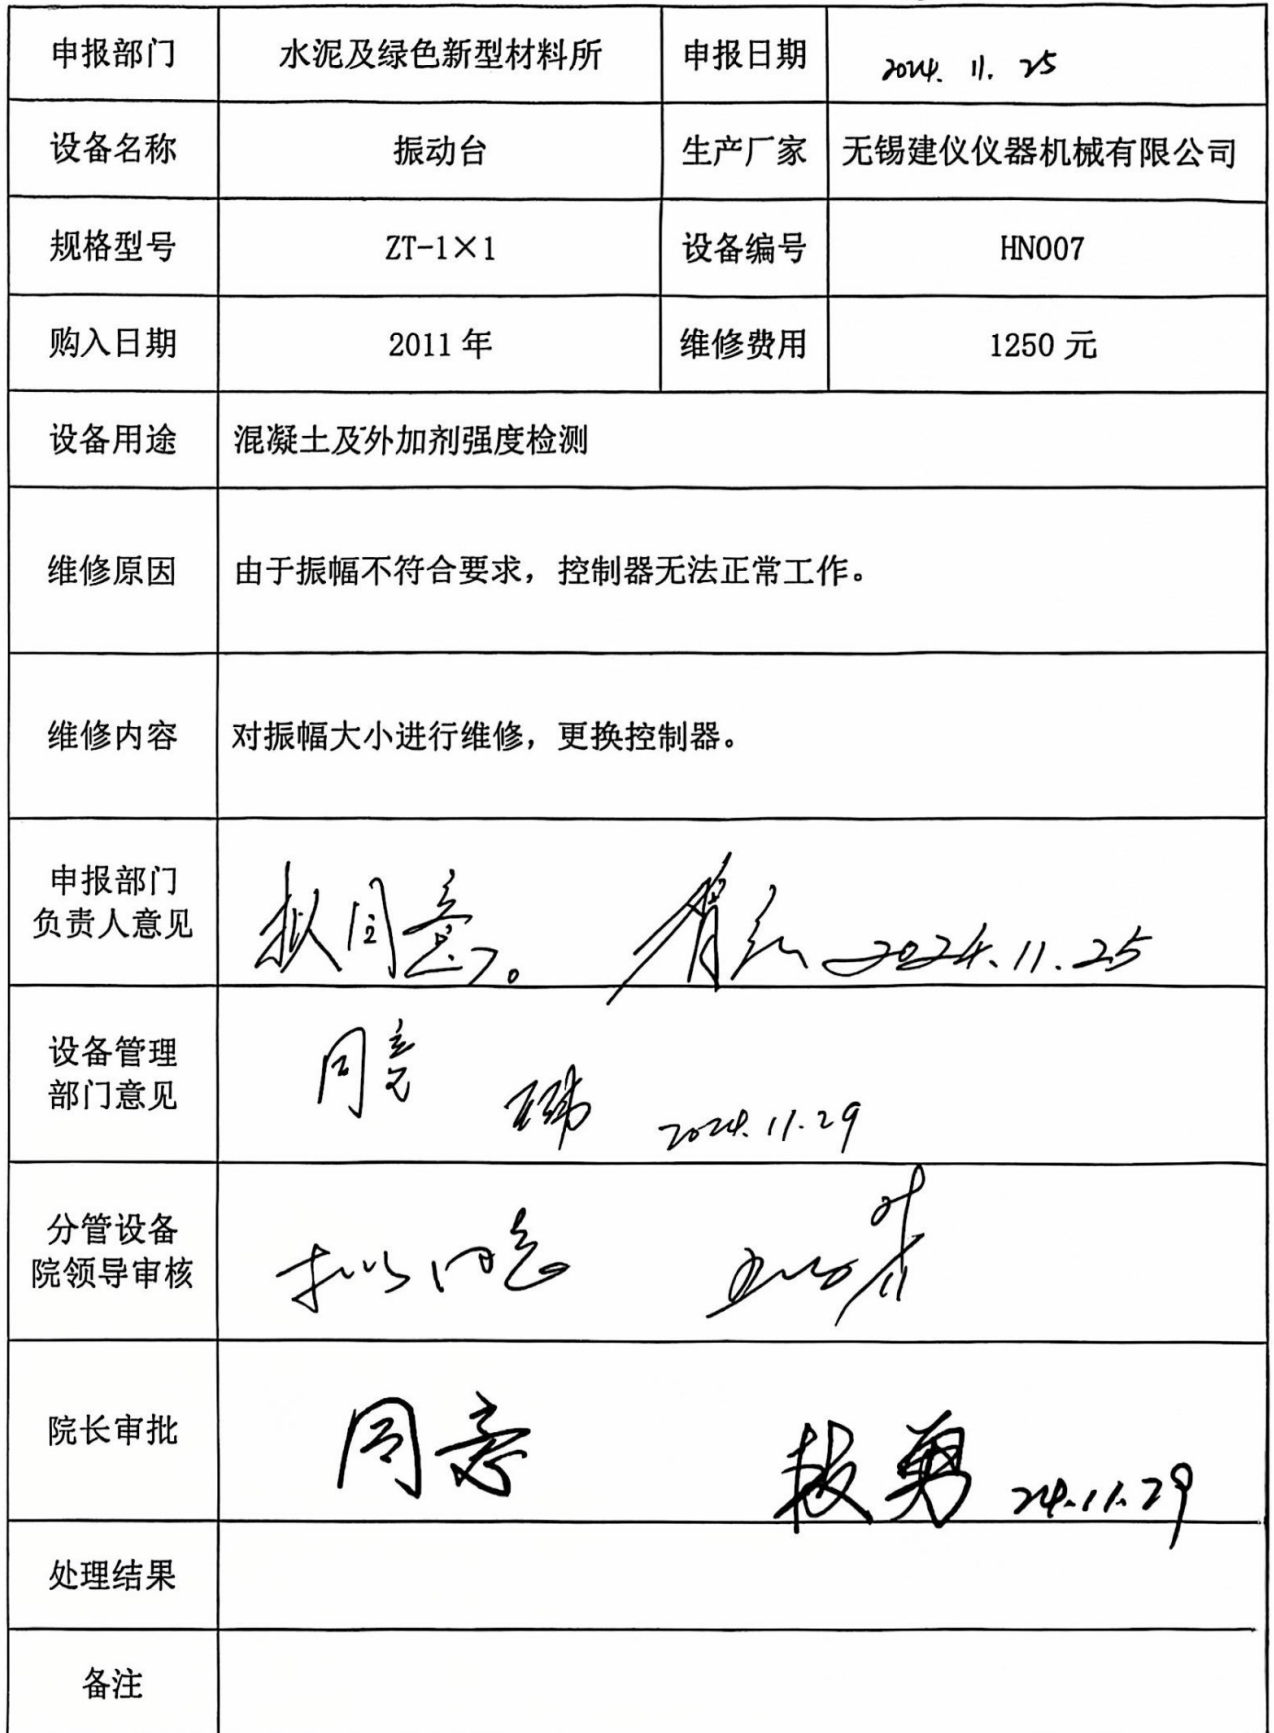 申报部门 水泥及绿色新型材料所 申报日期 2024. 11. 25
设备名称 振动台 生产厂家 无锡建仪仪器机械有限公司
规格型号 ZT-1×1 设备编号 HN007
购入日期 2011年 维修费用 1250元
设备用途 混凝土及外加剂强度检测
维修原因 由于振幅不符合要求，控制器无法正常工作。
维修内容 对振幅大小进行维修，更换控制器。
申报部门
负责人意见
拟同意。 2024.11.25
设备管理
部门意见
同意
2024.11.29
分管设备
院领导审核
拟同意
院长审批
同意 勇 24.11.29
处理结果
备注